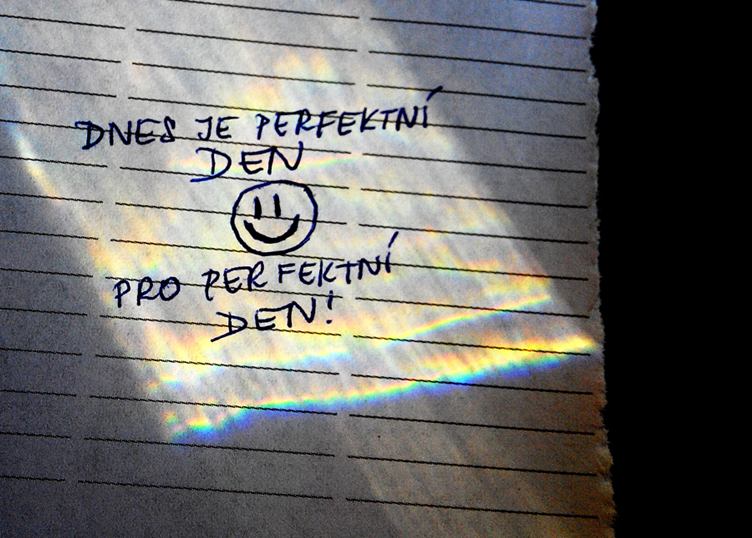 DNES JE PERFEKTNÍ
DEN
PRO PERFEKTNÍ
DEN!